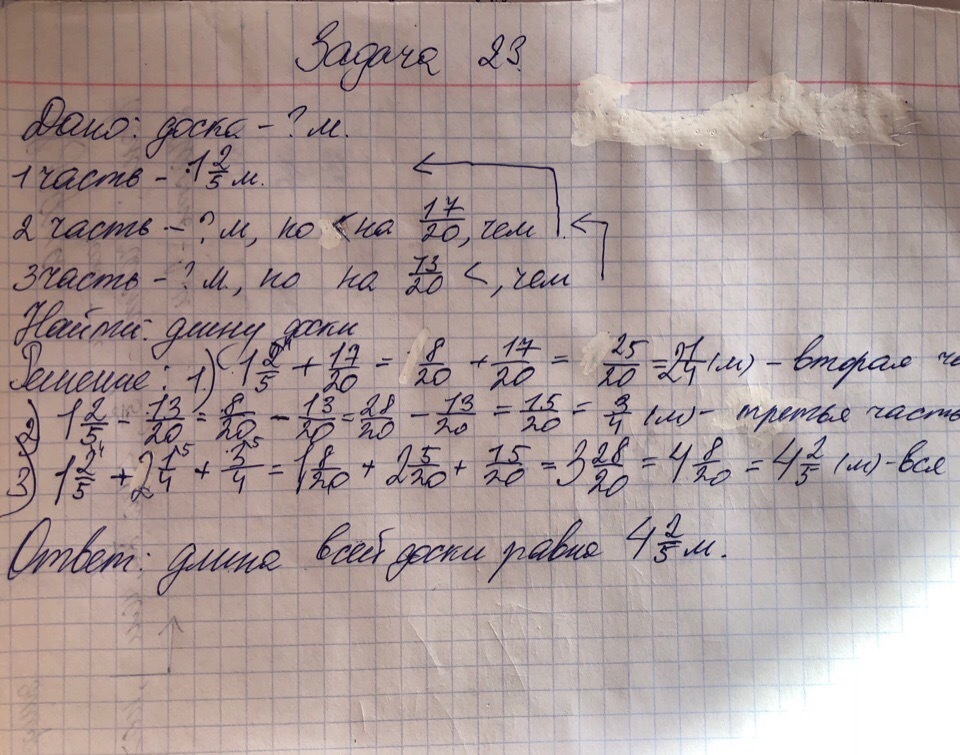 Задача 23.
Дано: доска - ? м.
1 часть - 1 2/5 м.
2 часть - ? м, но < на 17/20, чем
3 часть - ? м, но на 13/20 <, чем
Найти: длину доски
Решение: 1) 1 2/5 + 17/20 = 8/20 + 17/20 = 25/20 = 2 1/4 (м) - вторая ча
2) 1 2/5 - 13/20 = 8/20 - 13/20 = 28/20 - 13/20 = 15/20 = 3/4 (м) - третья часть
3) 1 2/5 + 2 1/4 + 3/4 = 1 8/20 + 2 5/20 + 15/20 = 3 28/20 = 4 8/20 = 4 2/5 (м) - вся
Ответ: длина всей доски равна 4 2/5 м.